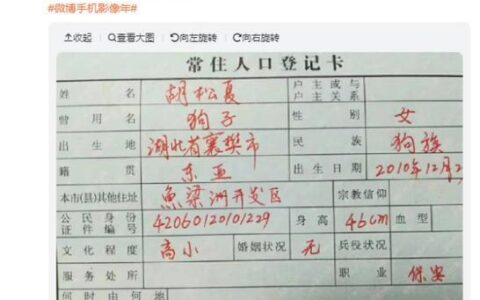 #微博手机影像年#
收起 查看大图 向左旋转 向右旋转
常住人口登记卡
姓名 胡松夏 户主或与户主关系
曾用名 狗子 性别 女
出生地 湖北省襄樊市 民族 狗族
籍贯 东亚 出生日期 2010年12月2
本市(县)其他住址 鱼梁洲开发区 宗教信仰
公民身份证件编号 42060120101229 身高 46cm 血型
文化程度 高小 婚姻状况 无 兵役状况
服务处所 职业 保安
何时由何地